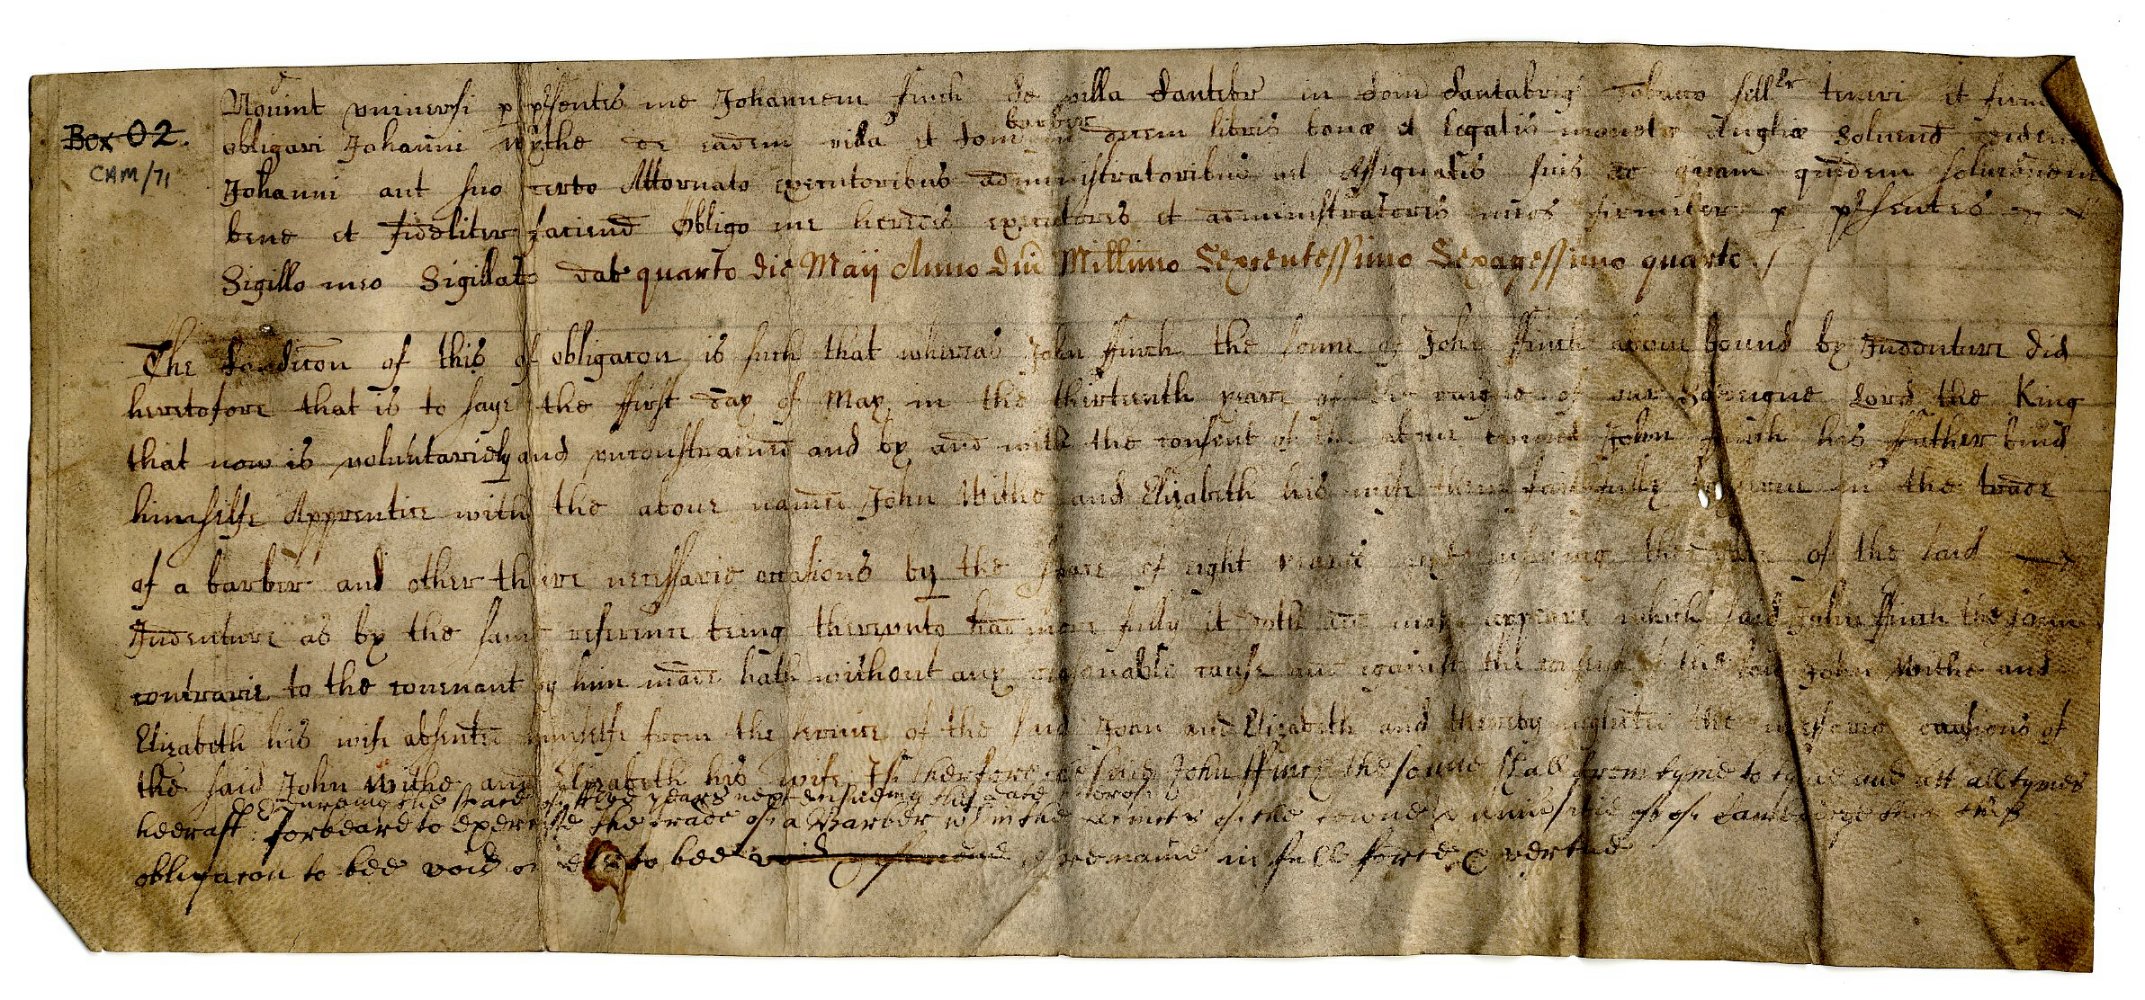 Box 02.
CAM/71
Nouint vniuersi p p'sentes me Johannem ffinch de villa Cantebr in Com Cantabrig Tobacco seller teneri et firm
barber
obligari Johanni Wythe de eadem villa et Com in libris bonæ et legalis monetæ Angliæ Soluend eidem
Johanni aut suo certo Attornato executoribus administratoribus vel Assignatis suis ad quam quidem soluconem
bene et fideliter faciend Obligo me heredes executores et administratores meos firmiter p p'sentes
Sigillo meo Sigillat dat quarto die Maij Anno Dni Millimo Sexcentessimo Sexagessimo quarto /
The Condicon of this obligacon is such that whereas John ffinch the sonne of John ffinch aboue bound by Indenture did
heretofore that is to saye the ffirst day of May in the thirteenth yeare of the raigne of our Soveraigne Lord the King
that now is voluntariely and vnconstrained and by and with the consent of the aboue John ffinch his ffather bind
himselfe Apprentice with the aboue named John Withe and Elizabeth his wife them faithfully to serue in the trade
of a barber and other there necessarie occasions by the space of eight yeares next ensuing the date of the said
Indenture as by the same reference being therevnto had more fully it doth and may appeare which said John ffinch the sonne
contrarie to the couenant by him made hath without any reasonable cause and against the consent of the said John Withe and
Elizabeth his wife absented himselfe from the seruice of the said John and Elizabeth and thereby neglected the necessarie occasions of
the said John Withe and Elizabeth his wife If therfore the said John ffinch the sonne shall from tyme to tyme and att all tymes
dureing the space of yeares next ensueing the date hereof
heeraft forbeare to exercise the trade of a Barber w'thin the lymits of the towne & of Cambridge then this
obligacon to bee void or els to bee void remaine in full force & vertue